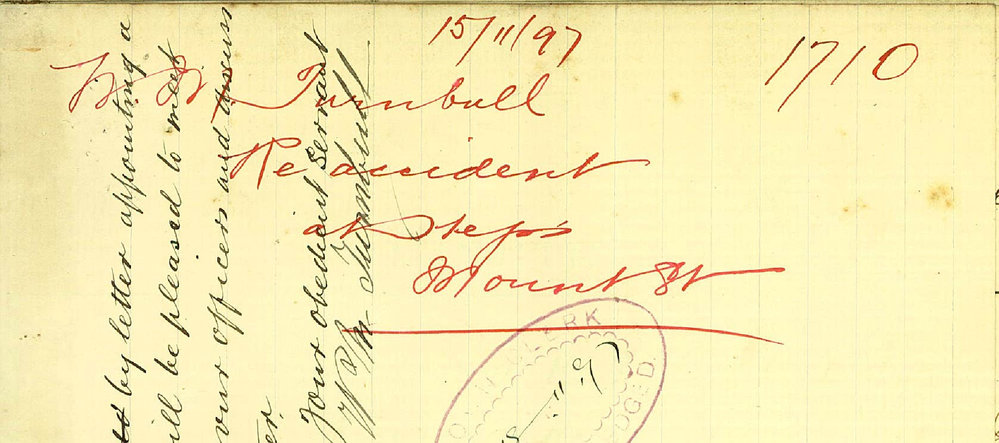 15/11/97
1710
W. W. Turnbull
Re accident
at Steps
Mount St
by letter appointing a
ill be pleased to meet
our officers and discuss
er.
Your obedient Servant
Turnbull
CLERK
11.97
DGED.